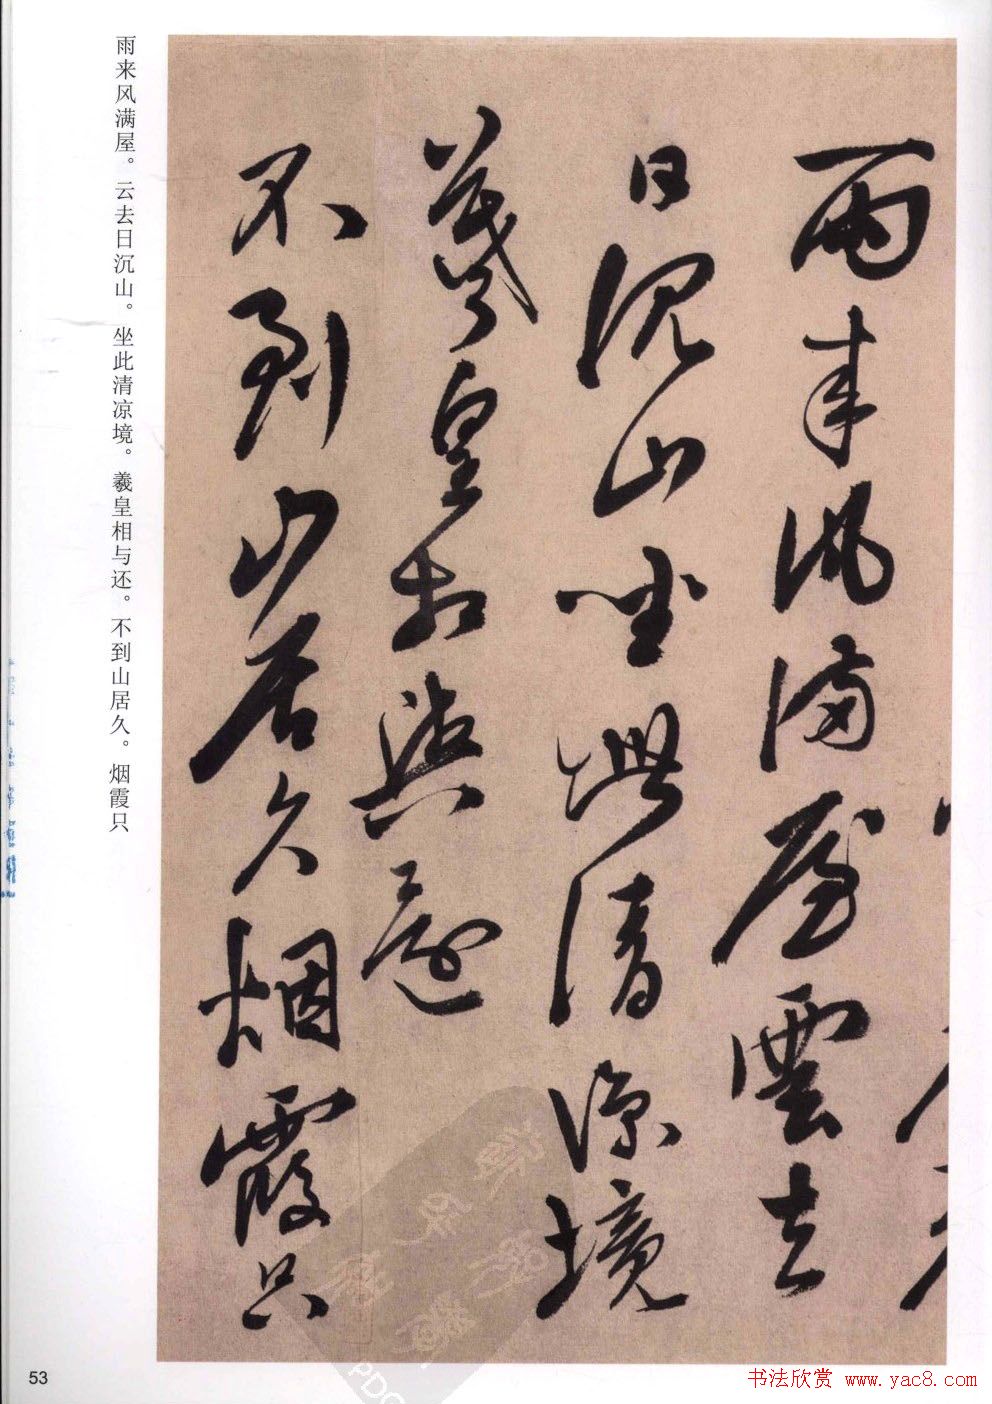 雨来风满屋云去
日沉山坐此清凉境
羲皇相与還
不到山居久烟霞只
雨来风满屋。云去日沉山。坐此清凉境。羲皇相与还。不到山居久。烟霞只
53
书法欣赏 www.yac8.com